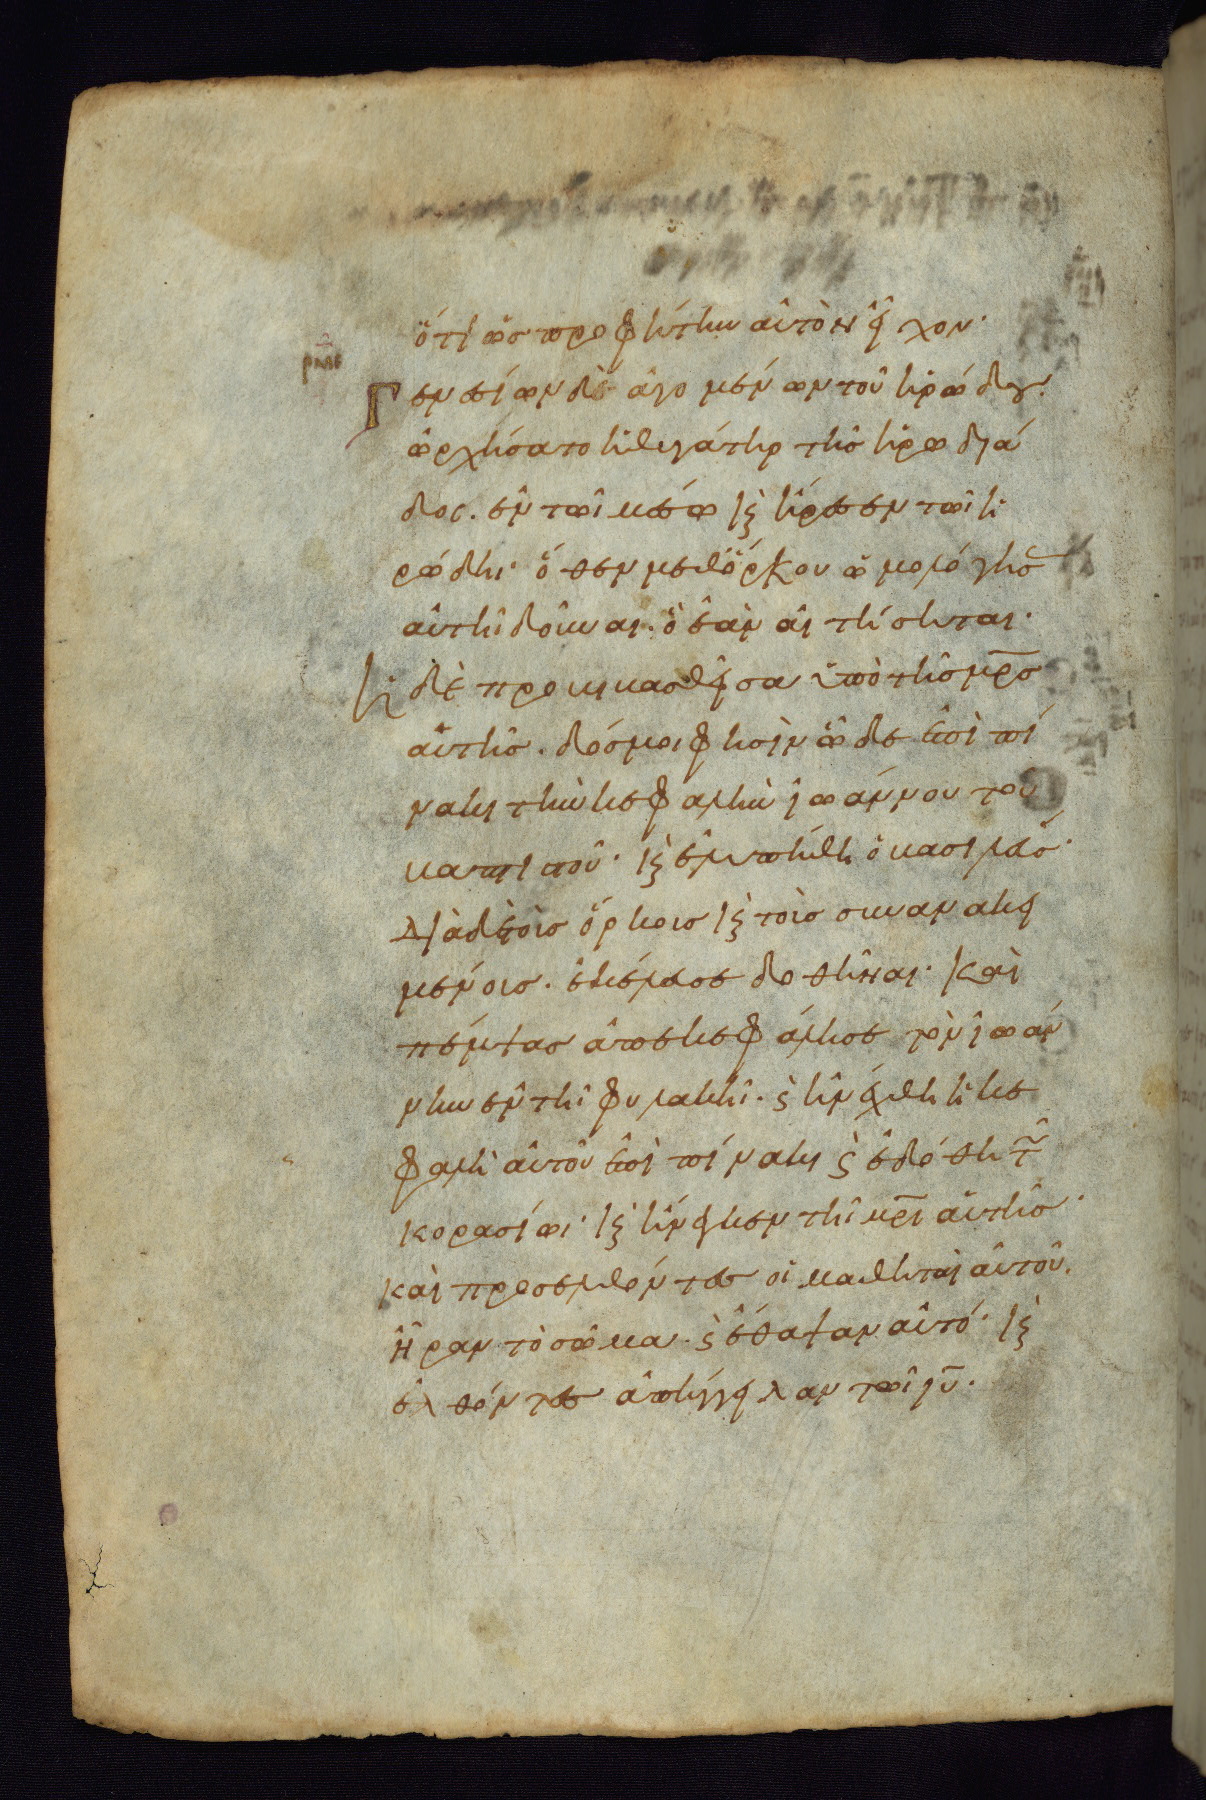 ὅτι ὡσ προφήτην αὐτὸν εἶχον·
Γενεσίων δὲ ἀγομένων τοῦ ἡρώδου.
ὠρχήσατο ἡ θυγάτηρ τῆσ ἡρωδιά
δοσ. ἐν τῶι μέσω κ(αὶ) ἤρεσεν τῶι ἡ
ρώδηι· ὅθεν μεθ ὅρκου ὡμολόγησ
αὐτῆι δοῦναι. ὃ ἐὰν αἰτήσηται·
ἡ δὲ προβιβασθεῖσα ὑπὸ τῆσ μρ̅σ
αὐτῆσ. δόσ μοι φησὶν ὧδε ἐπὶ πί
νακι τὴν κεφαλὴν ἰωάννου τοῦ
βαπτιστοῦ· κ(αὶ) ἐλυπήθη ὁ βασιλεύσ·
διὰ δὲ τοὺσ ὅρκουσ κ(αὶ) τοὺσ συνανακει
μένουσ. ἐκέλευσε δοθῆναι· καὶ
πέμψασ ἀπεκεφάλισε τὸν ἰωάν
νην ἐν τῆι φυλακῆι. κ(αὶ) ἠνέχθη ἡ κε
φαλὴ αὐτοῦ ἐπὶ πίνακι κ(αὶ) ἐδόθη τῶ
κορασίωι· κ(αὶ) ἤνεγκεν τῆι μρ̅ι αὐτῆσ·
καὶ προσελθόντεσ οἱ μαθηταὶ αὐτοῦ.
ἦραν τὸ σῶμα. κ(αὶ) ἔθαψαν αὐτό· κ(αὶ)
ἐλθόντεσ ἀπήγγειλαν τῶι ιυ̅.